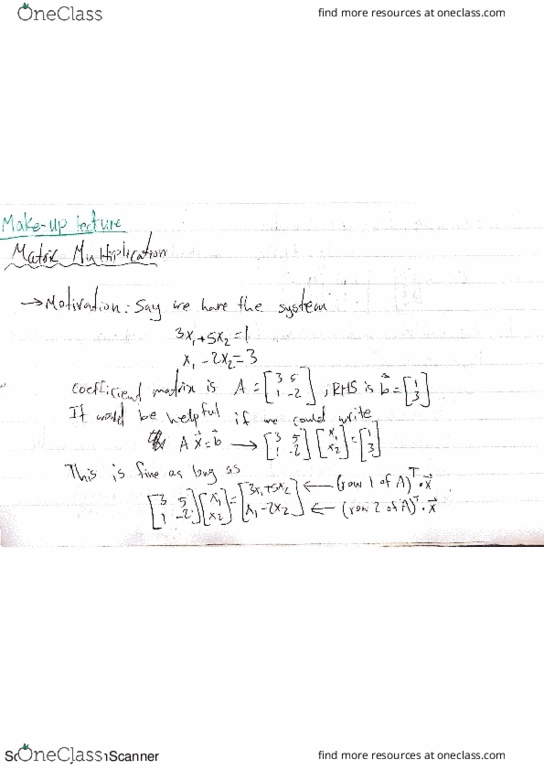 OneClass
find more resources at oneclass.com
Make-up lecture
Matrix Multiplication
→ Motivation: Say we have the system
3x₁+5x₂=1
x₁-2x₂=3
Coefficient matrix is A = [3 5; 1 -2], RHS is b⃗ = [1; 3]
It would be helpful if we could write
A x⃗ = b⃗ → [3 5; 1 -2] [x₁; x₂] = [1; 3]
This is fine as long as
[3 5; 1 -2] [x₁; x₂] = [3x₁+5x₂; x₁-2x₂] ← (row 1 of A)ᵀ·x⃗
← (row 2 of A)ᵀ·x⃗
OneClass
Scanner
find more resources at oneclass.com